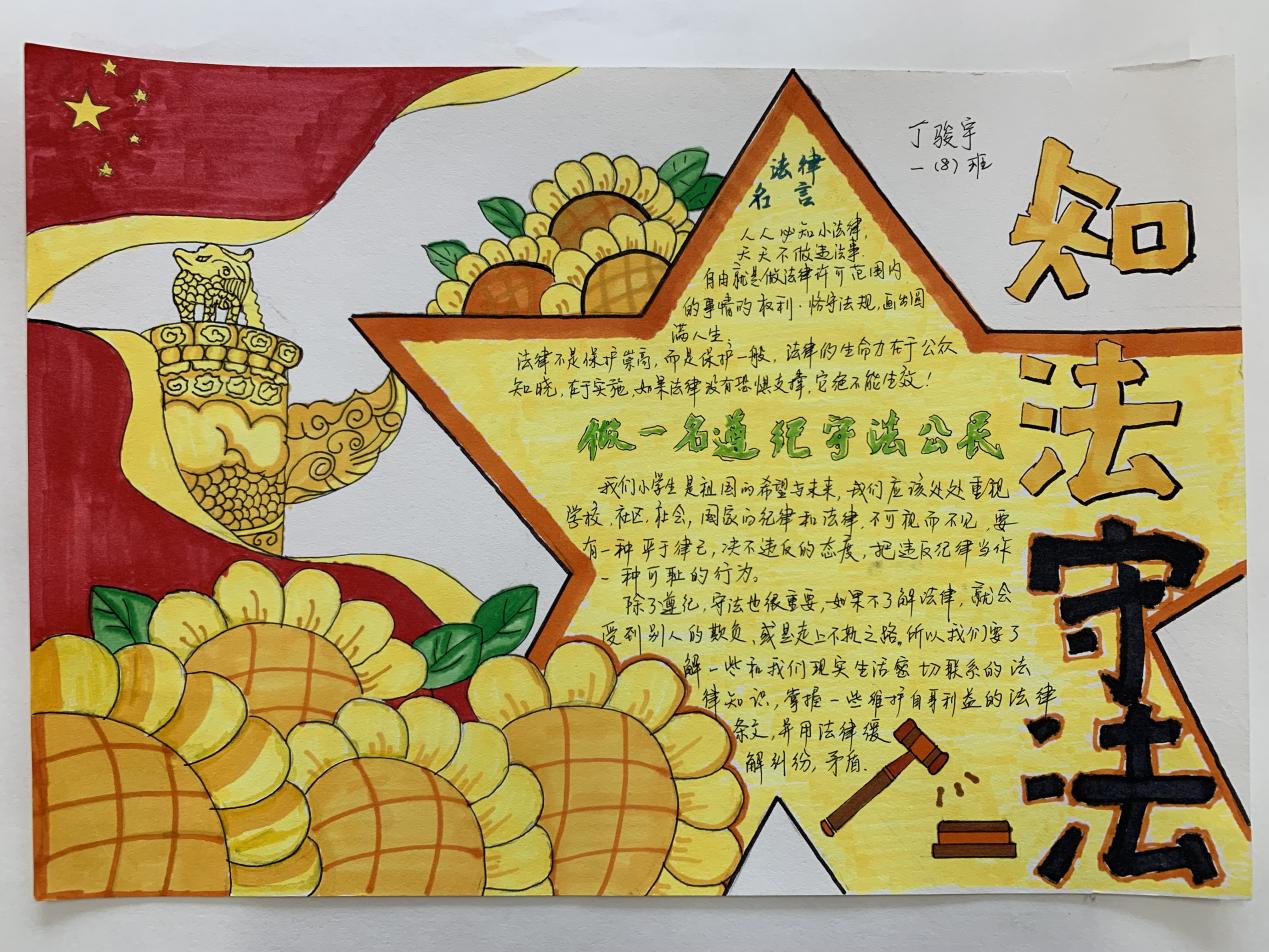 丁骏宇
一(8)班
知法守法
法律
名言
人人必知小法律,
天天不做违法事.
自由就是做法律许可范围内
的事情的权利.恪守法规,画出圆
满人生
法律不是保护崇高,而是保护一般,法律的生命力在于公众
知晓,在于实施,如果法律没有恐惧支撑,它绝不能生效!
做一名遵纪守法公民
我们小学生是祖国的希望与未来,我们应该处处重视
学校.社区.社会,国家的纪律和法律.不可视而不见,要
有一种严于律己,决不违反的态度,把违反纪律当作
一种可耻的行为。
除了遵纪,守法也很重要,如果不了解法律,就会
受到别人的欺负,或是走上不轨之路.所以我们要了
解一些和我们现实生活密切联系的法
律知识,掌握一些维护自身利益的法律
条文,并用法律缓
解纠纷,矛盾.